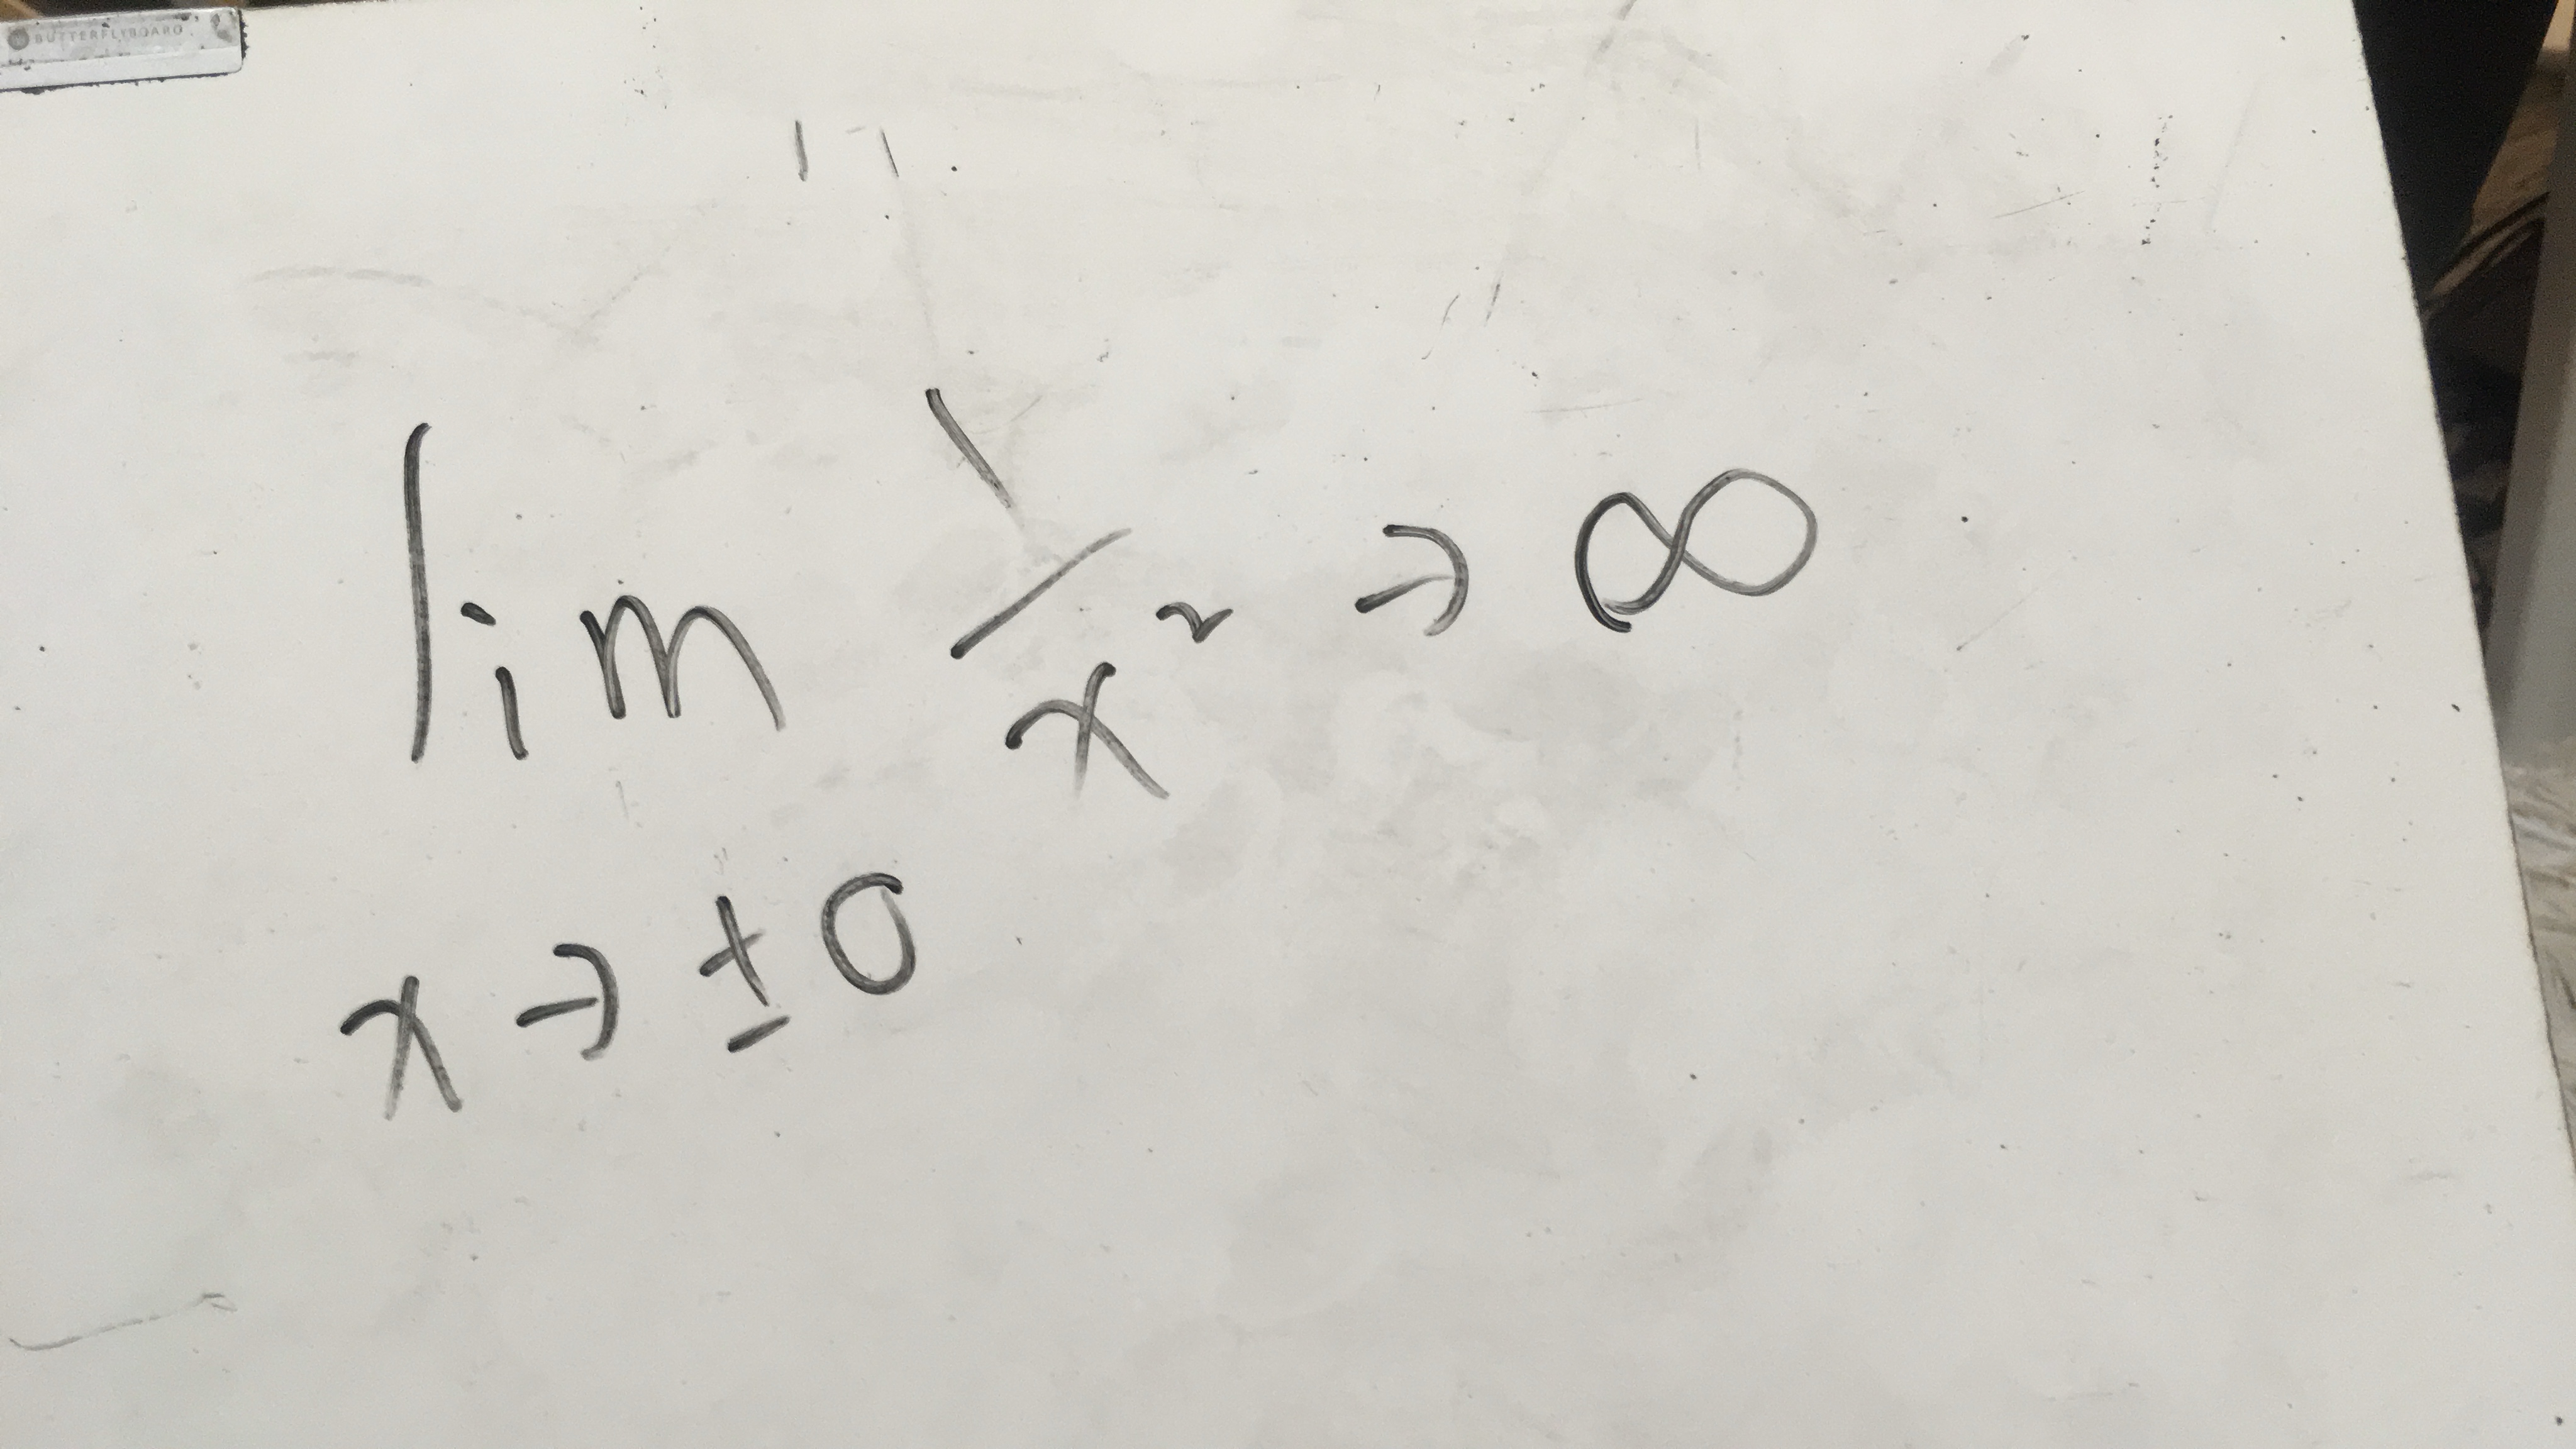 BUTTERFLYBOARD
lim 1/x² → ∞
x → ±0